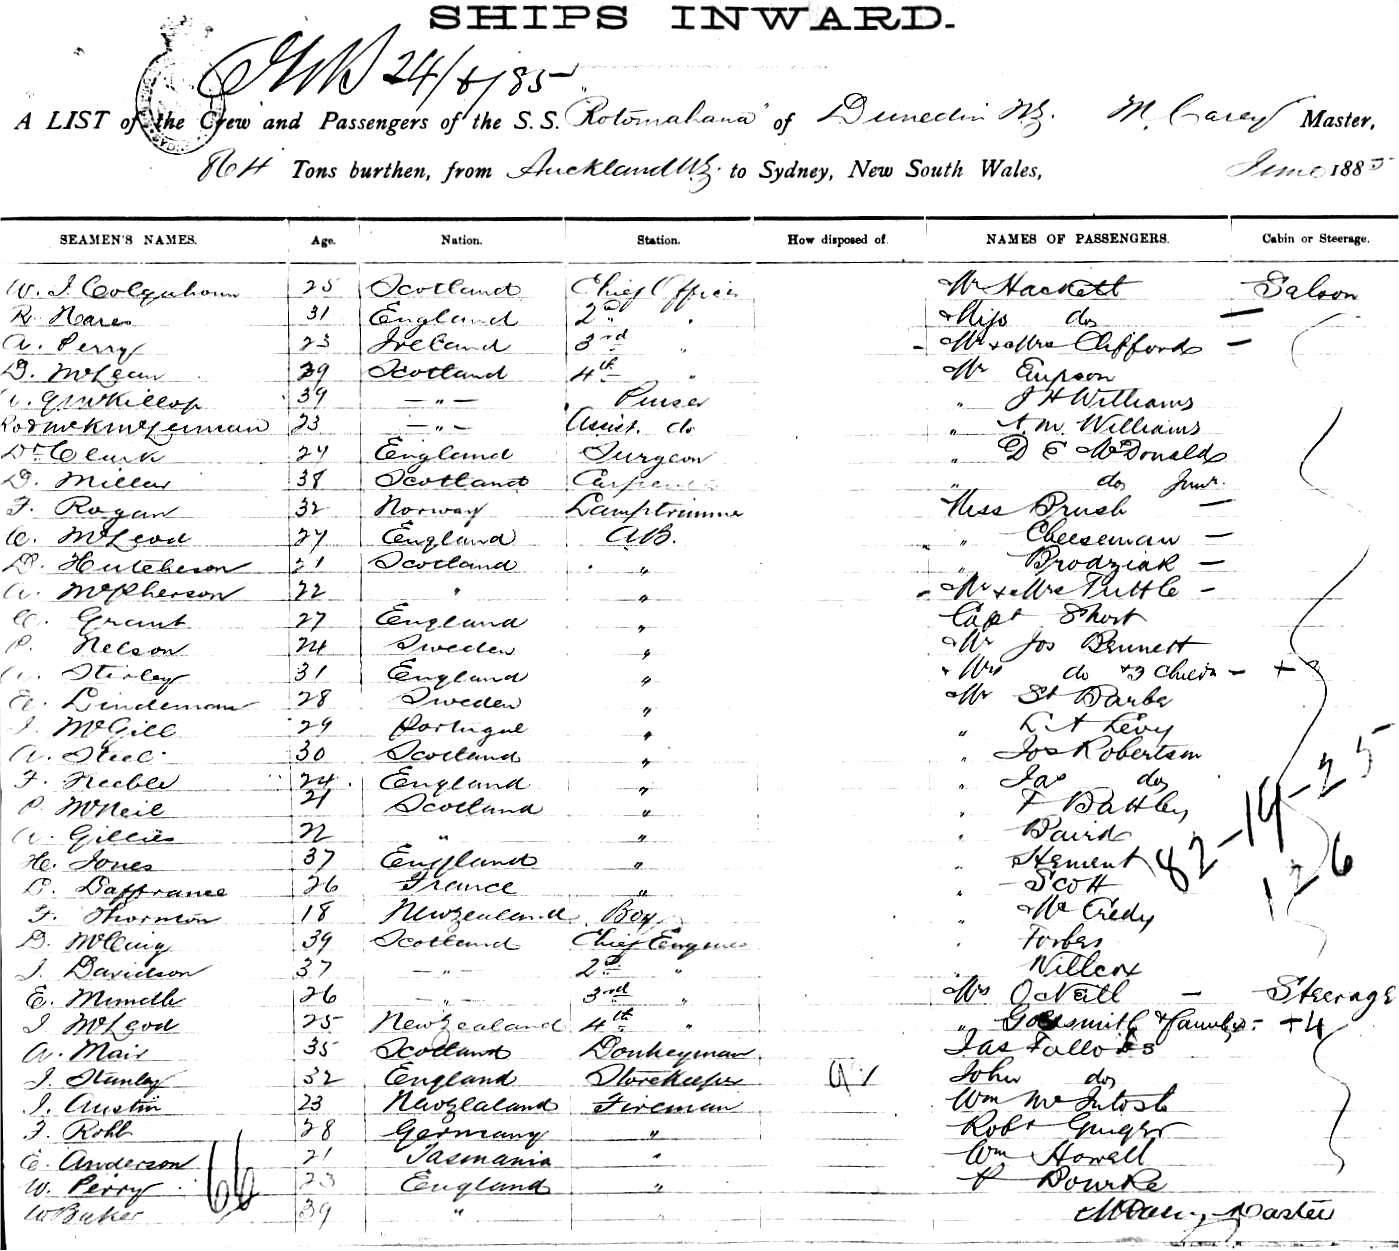 SHIPS INWARD.
24/6/85
A LIST of the Crew and Passengers of the S.S. "Rotomahana" of Dunedin NZ. M. Carey Master,
864 Tons burthen, from Auckland N.Z. to Sydney, New South Wales, June 1885
SEAMEN'S NAMES. Age. Nation. Station. How disposed of. NAMES OF PASSENGERS. Cabin or Steerage.
W. J. Colquhoun 25 Scotland Chief Officer Mr Hackett Saloon
R. Nares 31 England 2nd " Miss do —
A. Perry 23 Ireland 3rd " Mr & Mrs Clifford —
D. McLean 29 Scotland 4th " Mr Empson
A. G. McKillop 39 — " — Purser " J H Williams
Rod McK McLennan 23 — " — Assist. do " A. M. Williams
Dr Clark 24 England Surgeon " D E McDonald
D. Millar 38 Scotland Carpenter " do Junr.
F. Rogan 32 Norway Lamptrimmer Miss Brush —
C. McLeod 27 England A.B. " Cheeseman —
D. Hutcheson 21 Scotland " " Brodziak —
A. McPherson 22 " " Mr & Mrs Tuttle —
C. Grant 27 England " Capt Short
P. Nelson 24 Sweden " Mr Jos Bennett
A. Stirley 31 England " " Mrs do & 3 Childn — + 3
A. Lindeman 28 Sweden " Mr St Barbe
J. McGill 29 Portugal " " L A Levy
A. Steel 30 Scotland " " Jos Robertson
F. Keeble 24 England " " Jas do
P. McNeil 21 Scotland " " F Battley
A. Gillies 22 " " " Baird
H. Jones 37 England " " Stement
D. Daffrance 26 France " " Scott
82-19-25
126
F. Thornton 18 New Zealand Boy " McCredy
D. McCuig 39 Scotland Chief Engineer " Forbes
J. Davidson 37 — " — 2nd " " Willcox
E. Mundle 26 — " — 3rd " Mrs O'Neill — Steerage
J. McLeod 25 New Zealand 4th " " Goldsmith & family - +4
A. Mair 35 Scotland Donkeyman Jas Fallows
J. Stanley 32 England Storekeeper John do
J. Austin 23 New Zealand Fireman Wm McIntosh
F. Robb 28 Germany " Robt
E. Anderson 21 Tasmania " Wm Howell
W. Perry 23 England " P Bourke
W Baker 39 " M Carey, Master
66